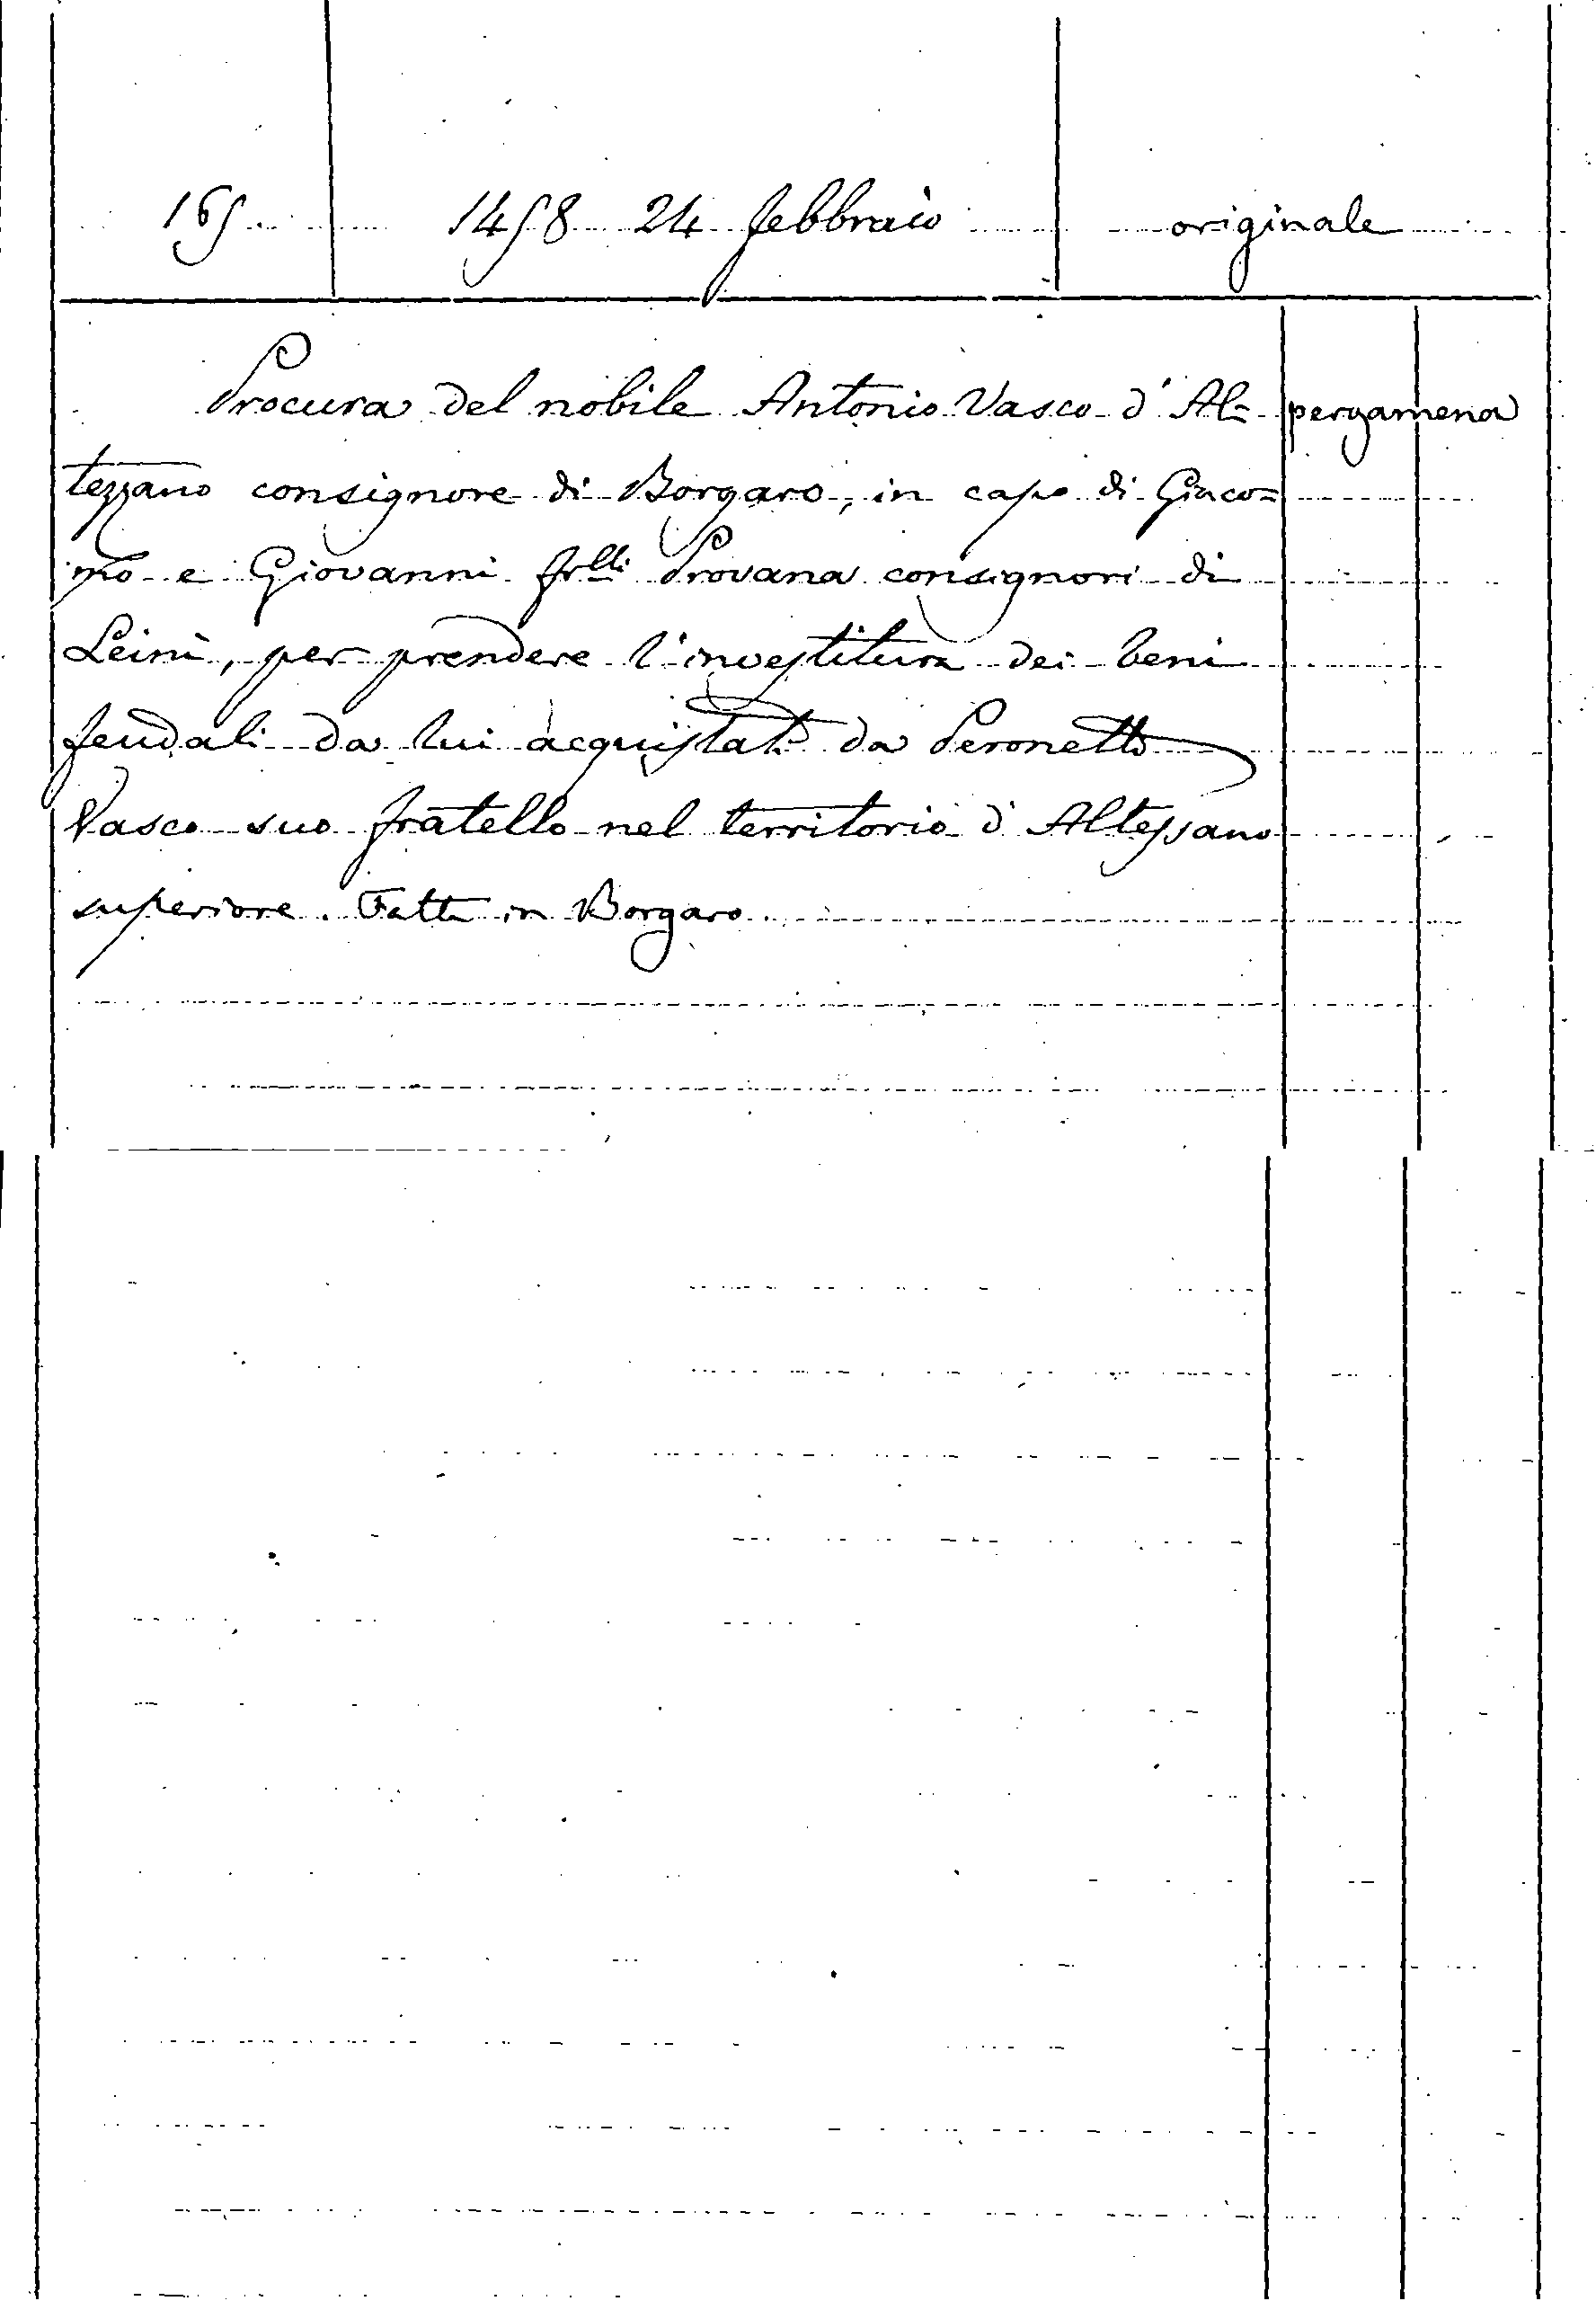 165 1458 24 febbraio originale
Procura del nobile Antonio Vasco d'Al= pergamena
tezzano consignore di Borgaro, in capo di Giaco=
mo e Giovanni frlli Provana consignori di
Leinì, per prendere l'investitura dei beni
feudali da lui acquistati da Peronetto
Vasco suo fratello nel territorio d'Altessano
superiore. Fatta in Borgaro.